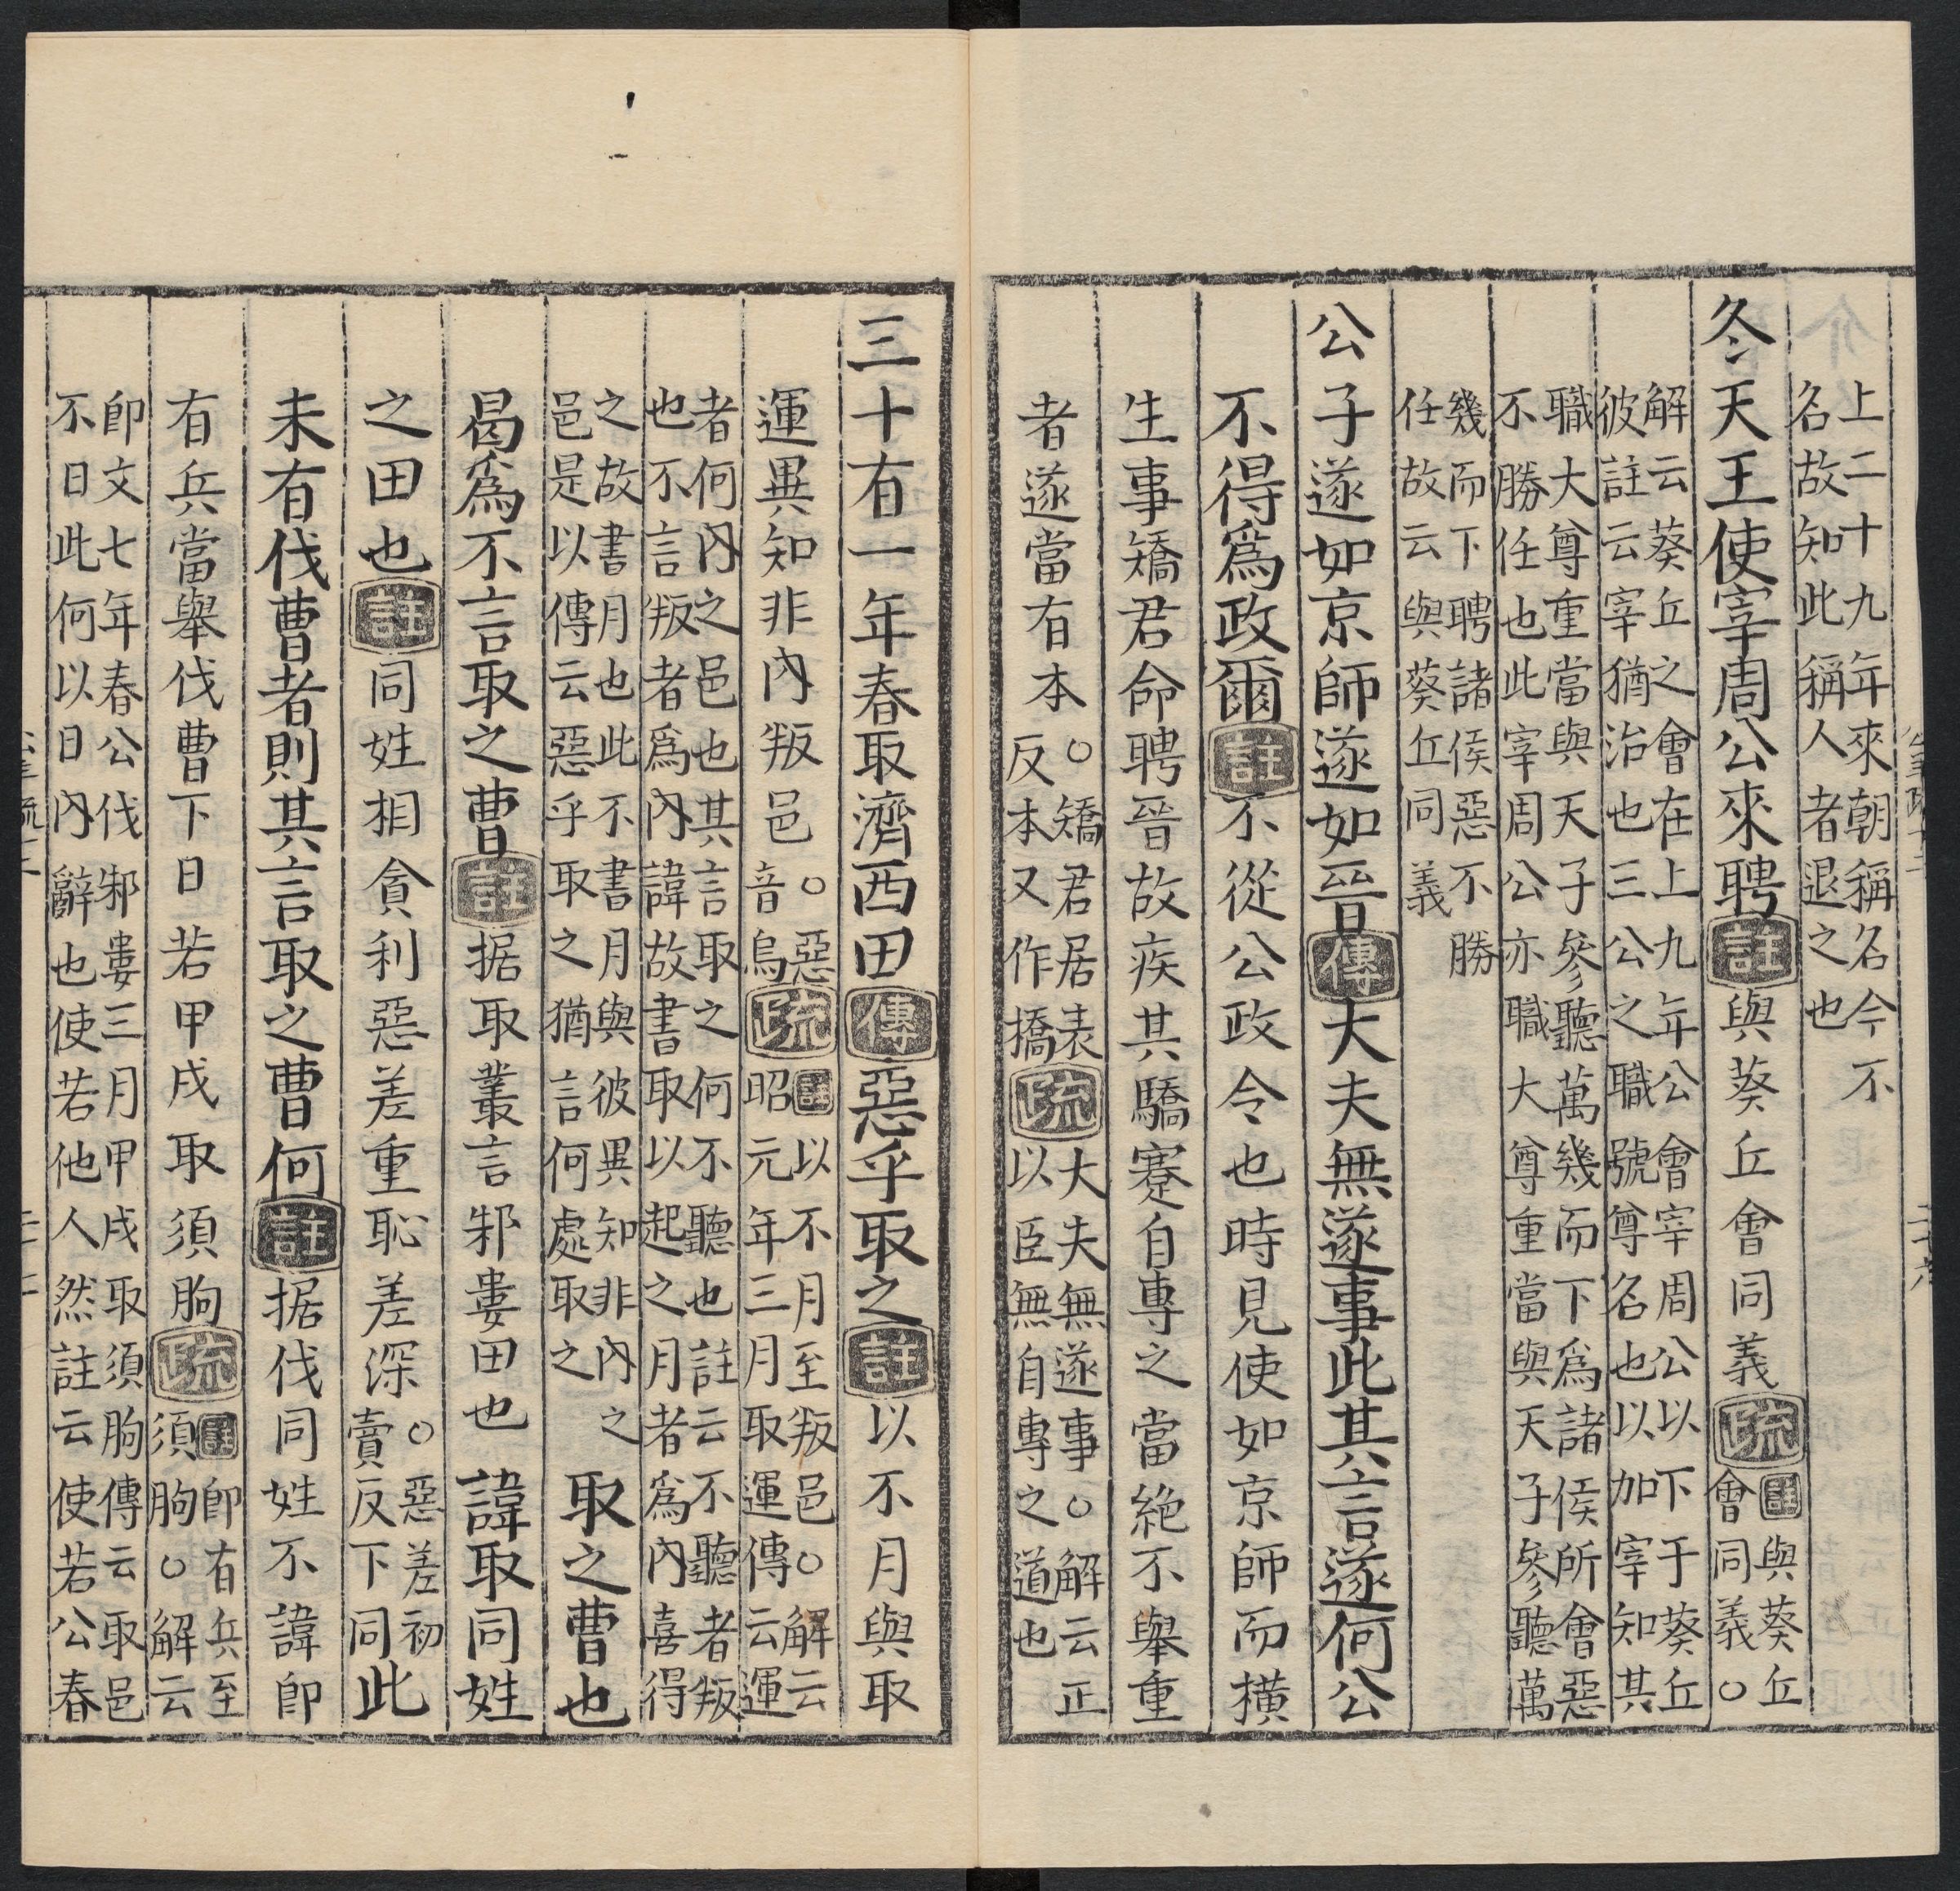 上二十九年來朝稱名今不
名故知此稱人者退之也
冬天王使宰周公來聘註與葵丘會同義疏註與葵丘
會同義○
解云葵丘之會在上九年公會宰周公以下于葵丘
彼註云宰猶治也三公之職號尊名也以加宰知其
職大尊重當與天子參聽萬幾而下為諸侯所會惡
不勝任也此宰周公亦職大尊重當與天子參聽萬
幾而下聘諸侯惡不勝
任故云與葵丘同義
公子遂如京師遂如晉傳大夫無遂事此其言遂何公
不得爲政爾註不從公政令也時見使如京師而橫
生事矯君命聘晉故疾其驕蹇自專之當絶不舉重
者遂當有本○矯君居表
反本又作撟疏大夫無遂事○解云正
以臣無自專之道也
三十有一年春取濟西田傳惡乎取之註以不月與取
運異知非內叛邑○惡
音烏疏註以不月至叛邑○解云
昭元年三月取運傳云運
者何內之邑也其言取之何不聽也註云不聽者叛
也不言叛者爲內諱故書取以起之月者爲內喜得
之故書月也此不書月與彼異知非內之
邑是以傳云惡乎取之猶言何處取之
取之曹也
曷爲不言取之曹註据取叢言邾婁田也諱取同姓
之田也註同姓相貪利惡差重恥差深○惡差初
賣反下同此
未有伐曹者則其言取之曹何註据伐同姓不諱卽
有兵當舉伐曹下日若甲戌取須朐疏註卽有兵至
須朐○解云
卽文七年春公伐邾婁三月甲戌取須朐傳云取邑
不日此何以日內辭也使若他人然註云使若公春